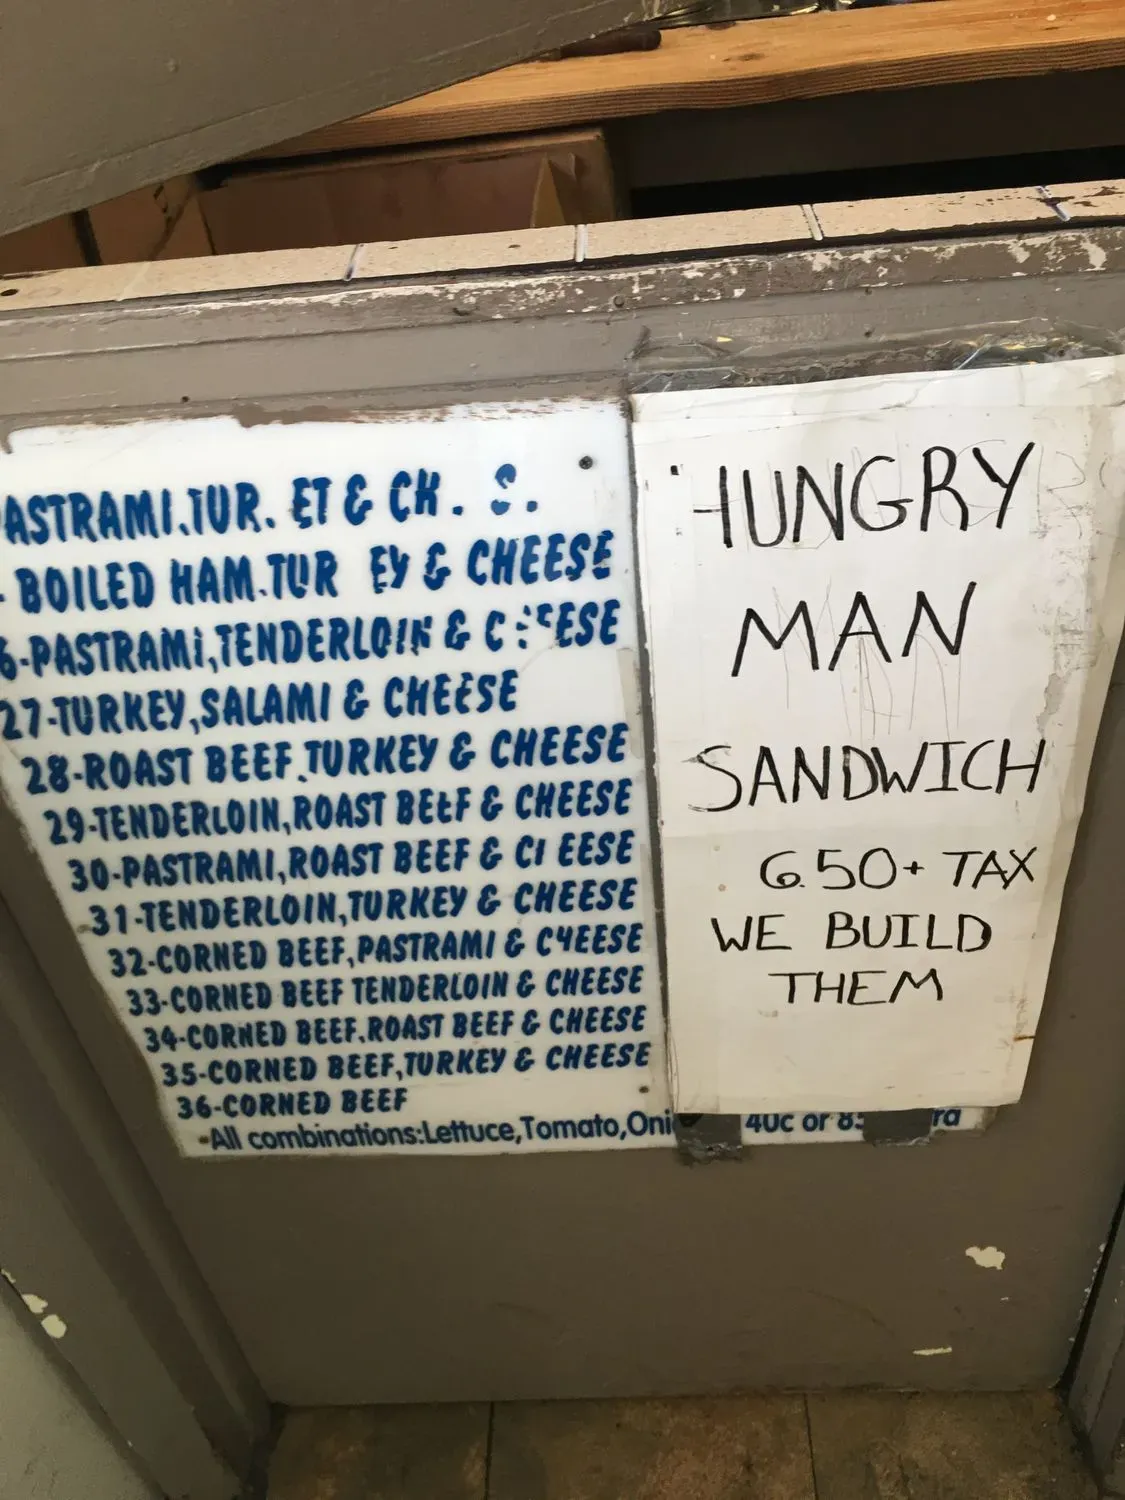 PASTRAMI, TUR. ET & CH . S.
- BOILED HAM. TUR EY & CHEESE
6-PASTRAMI, TENDERLOIN & C EESE
27-TURKEY, SALAMI & CHEESE
28-ROAST BEEF, TURKEY & CHEESE
29-TENDERLOIN, ROAST BEEF & CHEESE
30-PASTRAMI, ROAST BEEF & CHEESE
31-TENDERLOIN, TURKEY & CHEESE
32-CORNED BEEF, PASTRAMI & CHEESE
33-CORNED BEEF TENDERLOIN & CHEESE
34-CORNED BEEF, ROAST BEEF & CHEESE
35-CORNED BEEF, TURKEY & CHEESE
36-CORNED BEEF
All combinations: Lettuce, Tomato, Oni 40c or 85
HUNGRY
MAN
SANDWICH
6.50 + TAX
WE BUILD
THEM